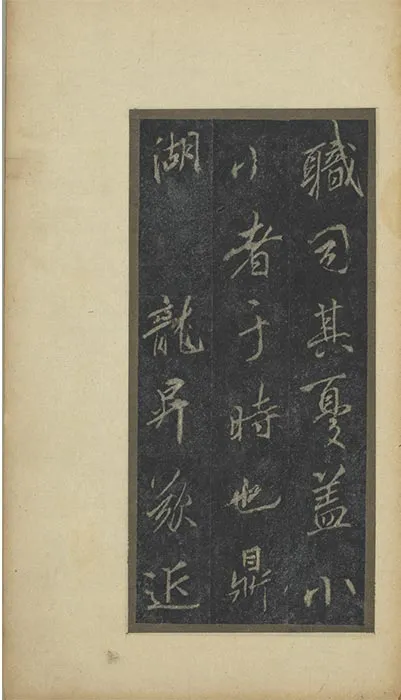 職司其憂盖小
小者于時也鼎
湖龍昇歘近